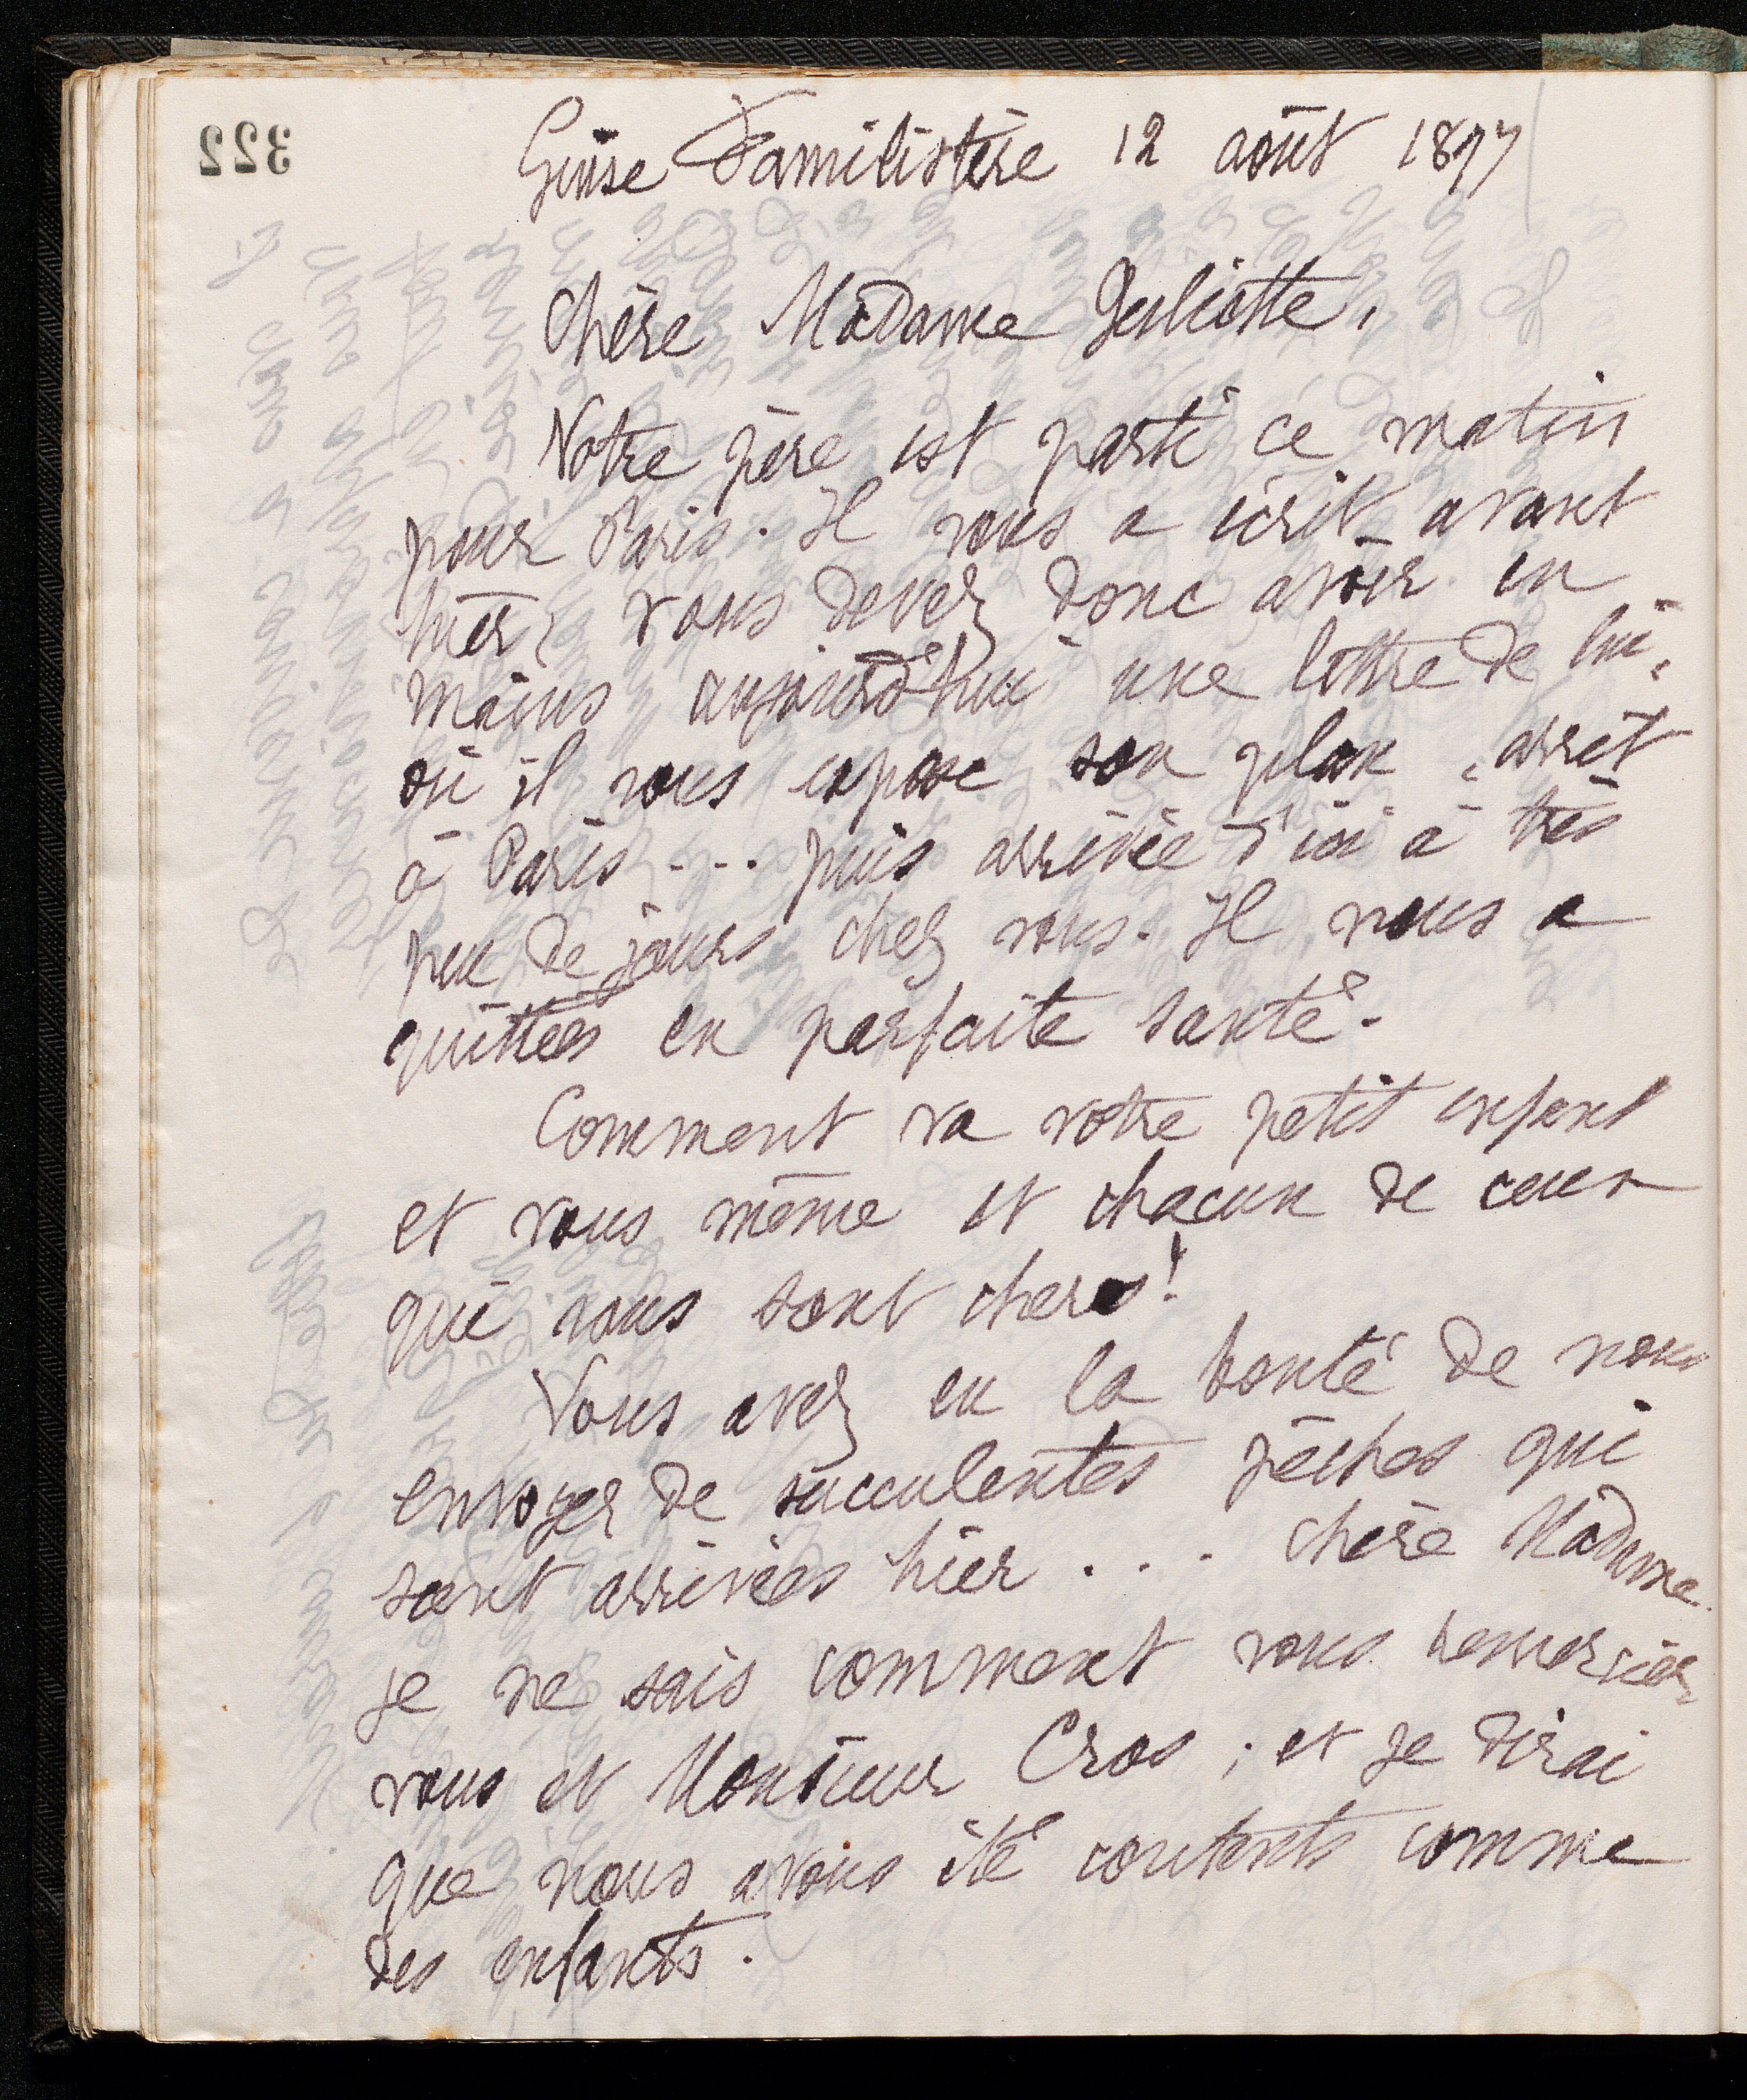 322
Guise Familistère 12 août 1897
Chère Madame Juliette,
Notre père est parti ce matin
pour Paris. Il vous a écrit avant
hier, vous devez donc avoir en
mains aujourd'hui une lettre de lui,
où il vous expose son plan, arrêt
à Paris... puis arrivée d'ici à très
peu de jours chez vous. Il nous a
quittées en parfaite santé.
Comment va votre petit enfant
et vous même et chacun de ceux
qui vous sont chers!
Vous avez eu la bonté de nous
envoyer de succulentes pêches qui
sont arrivées hier... chère Madame
je ne sais comment vous remercier,
vous et Monsieur Cros ; et je dirai
que nous avons été contents comme
des enfants.